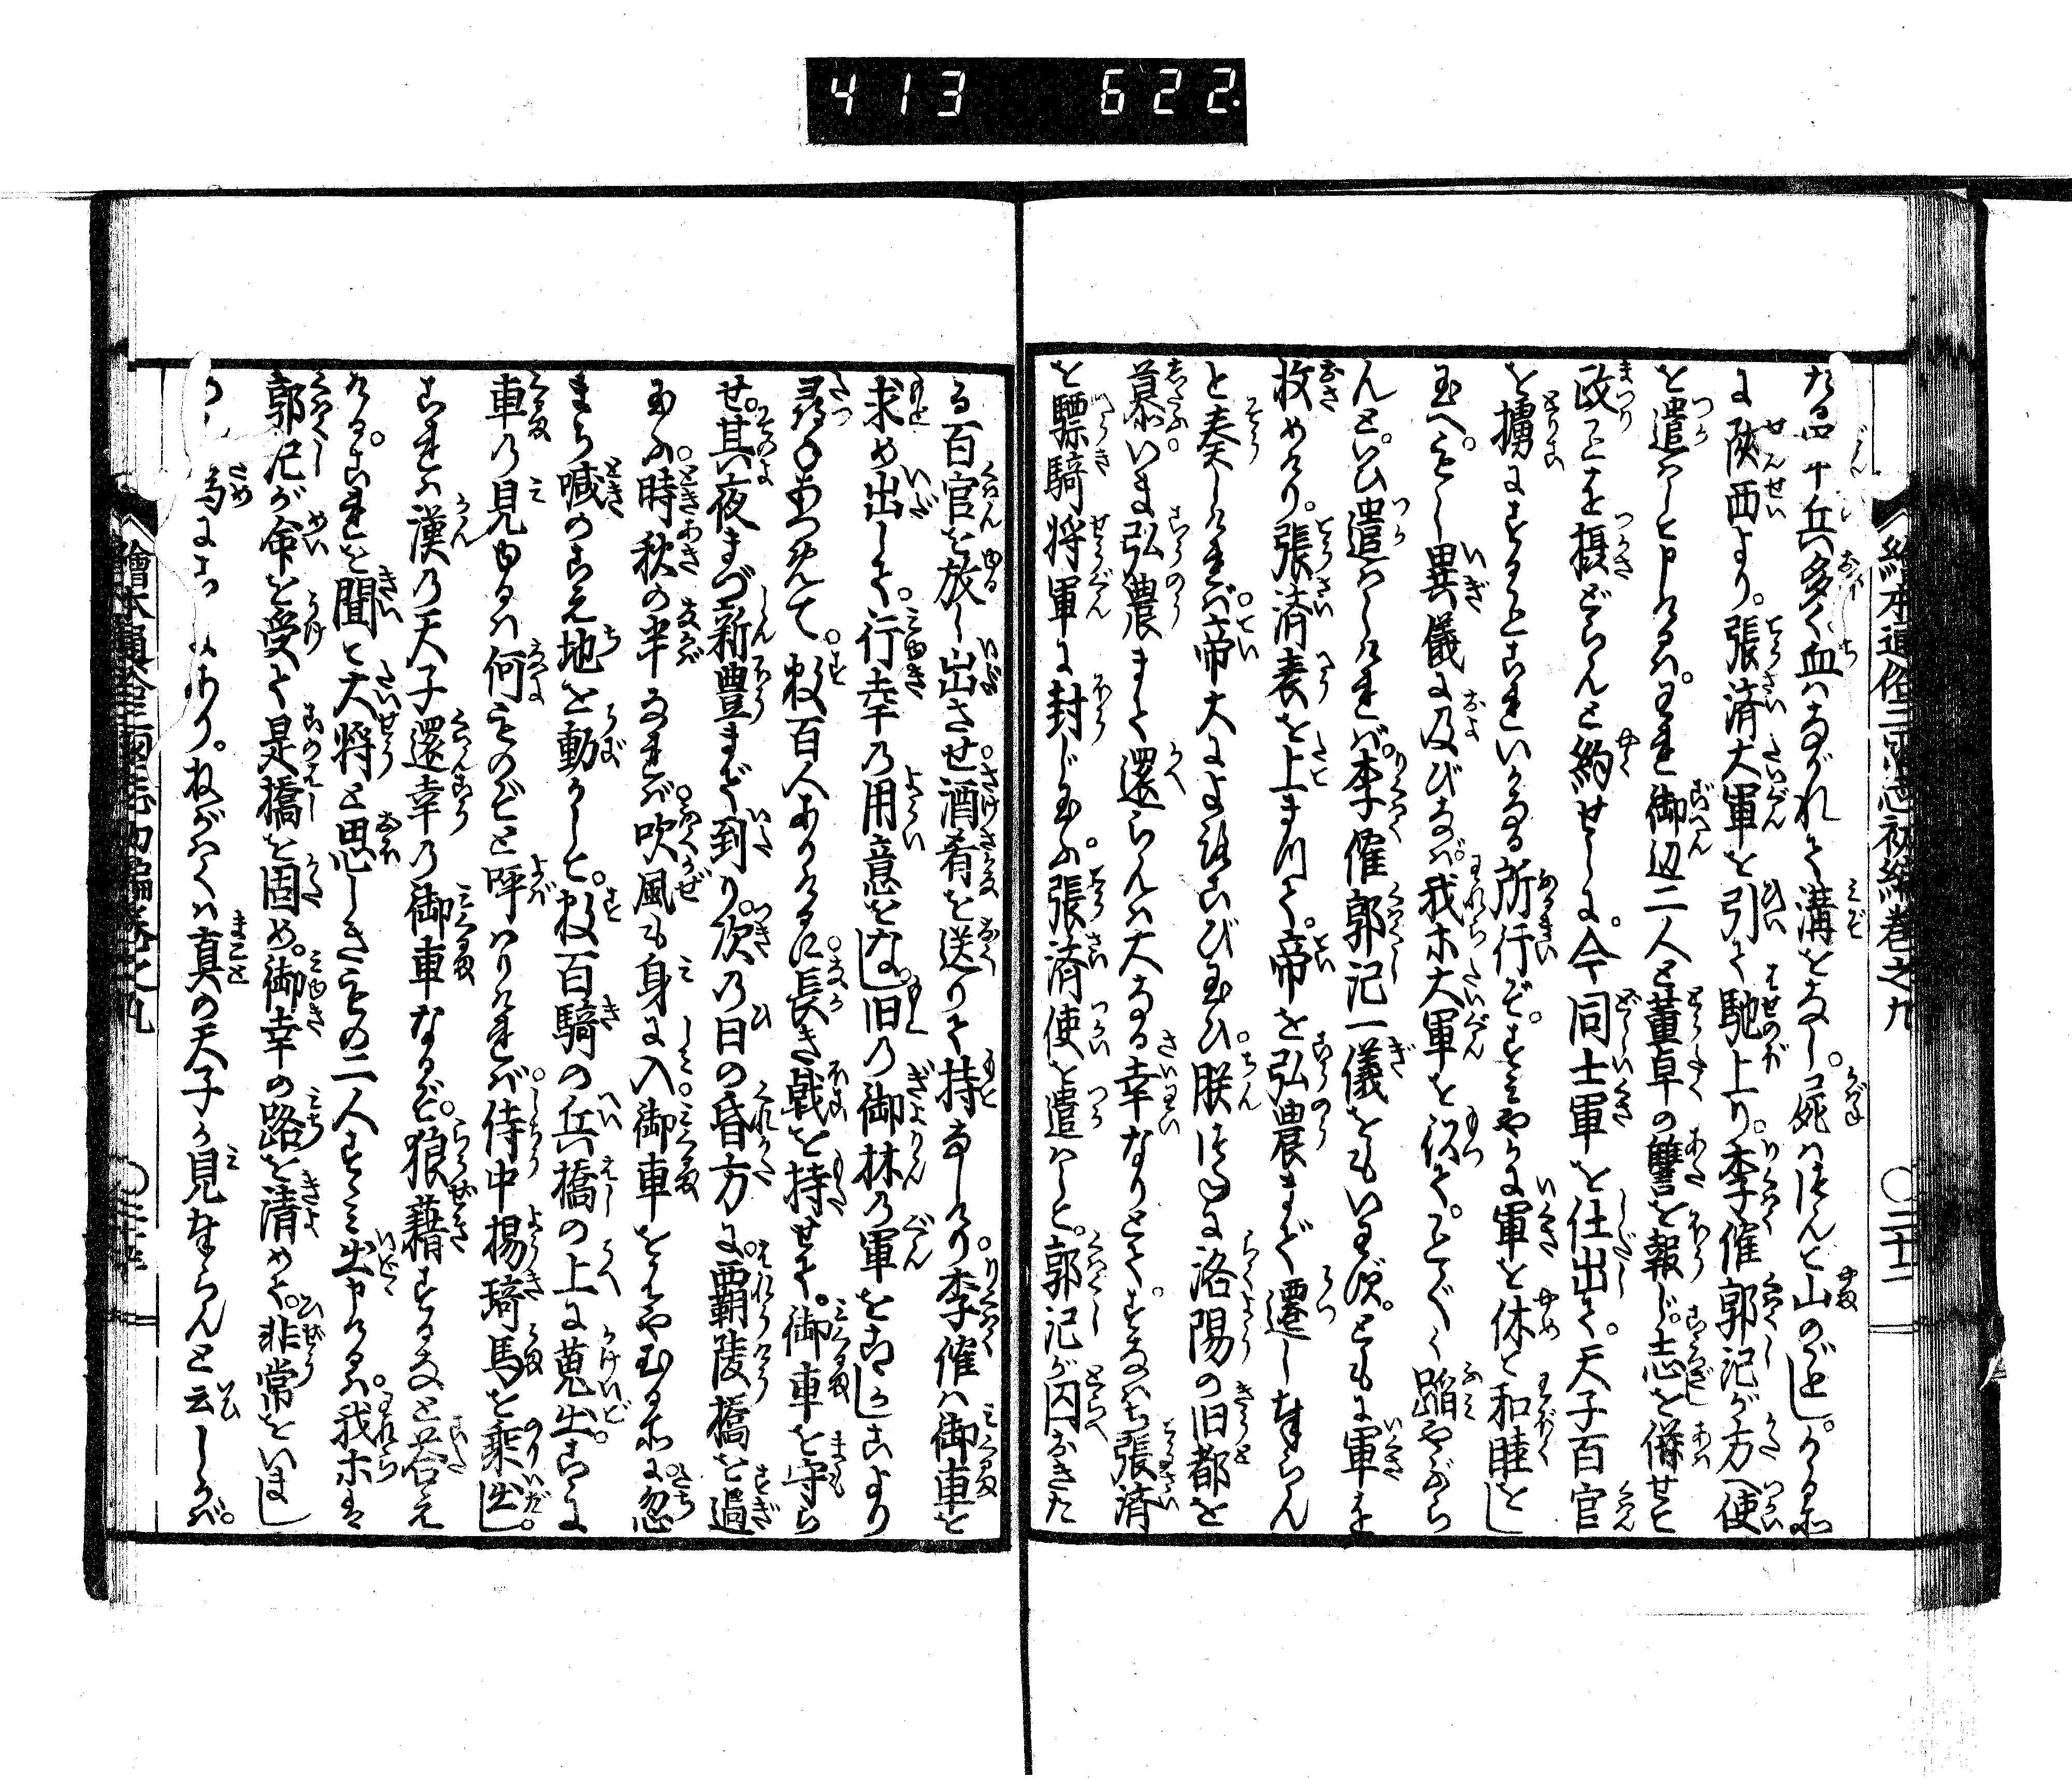 413 622.
繪本通俗三國志初編卷之九 〇二十一
兵多く血はながれて溝をなし。屍はつんで山のごとし。かゝる所
に陝西より。張済大軍を引て馳上り。李傕郭汜が方へ使
を遣はして申けるは。われ御辺二人と董卓の讐を報じ。志を併せて
政ごとを摂どらんと約せしに。今同士軍を仕出て。天子百官
を擄にすることこれいかなる所行ぞ。すみやかに軍を休て和睦し
玉へ。もし異儀に及びなば。我ホ大軍を以て。ことごとく蹈やぶら
んと。いひ遣はしければ。李傕郭汜一儀をもいはず。ともに軍を
収めけり。張済表を上まつりて。帝を弘農まで遷し奉らん
と奏しければ。帝大によろこび玉ひ。朕つねに洛陽の旧都を
慕ふ。いま弘農まで還らんは大なる幸なりとて。すなはち張済
を驃騎将軍に封じ玉ふ。張済使を遣はして。郭汜が囚おきた
る百官を放し出させ。酒肴を送りて持なしけり。李傕は御車を
求め出して。行幸乃用意をなし。旧の御林乃軍をこゝかしこより
尋ねあつめて。数百人ありけるに。長き戟を持せて。御車を守ら
せ。其夜まづ新豊まで到り。次乃日の昏方に。覇陵橋を過
玉ふ。時秋の半なれば。吹風も身に入御車をはやむる所に。忽
まち喊のこえ地を動かして。数百騎の兵橋の上に蒐出。こゝに
車乃見ゆるは何ものぞと呼はりければ。侍中楊琦馬を乗出し。
これは漢乃天子還幸乃御車なるぞ。狼藉するなと荅え
ける。これを聞て大将と思しきもの二人すゝみ出申けるは。我ホは
郭汜が命を受て是橋を固め。御幸の路を清めて。非常をいまし
あり。ねがはくは真の天子を見奉らんと云しかば。